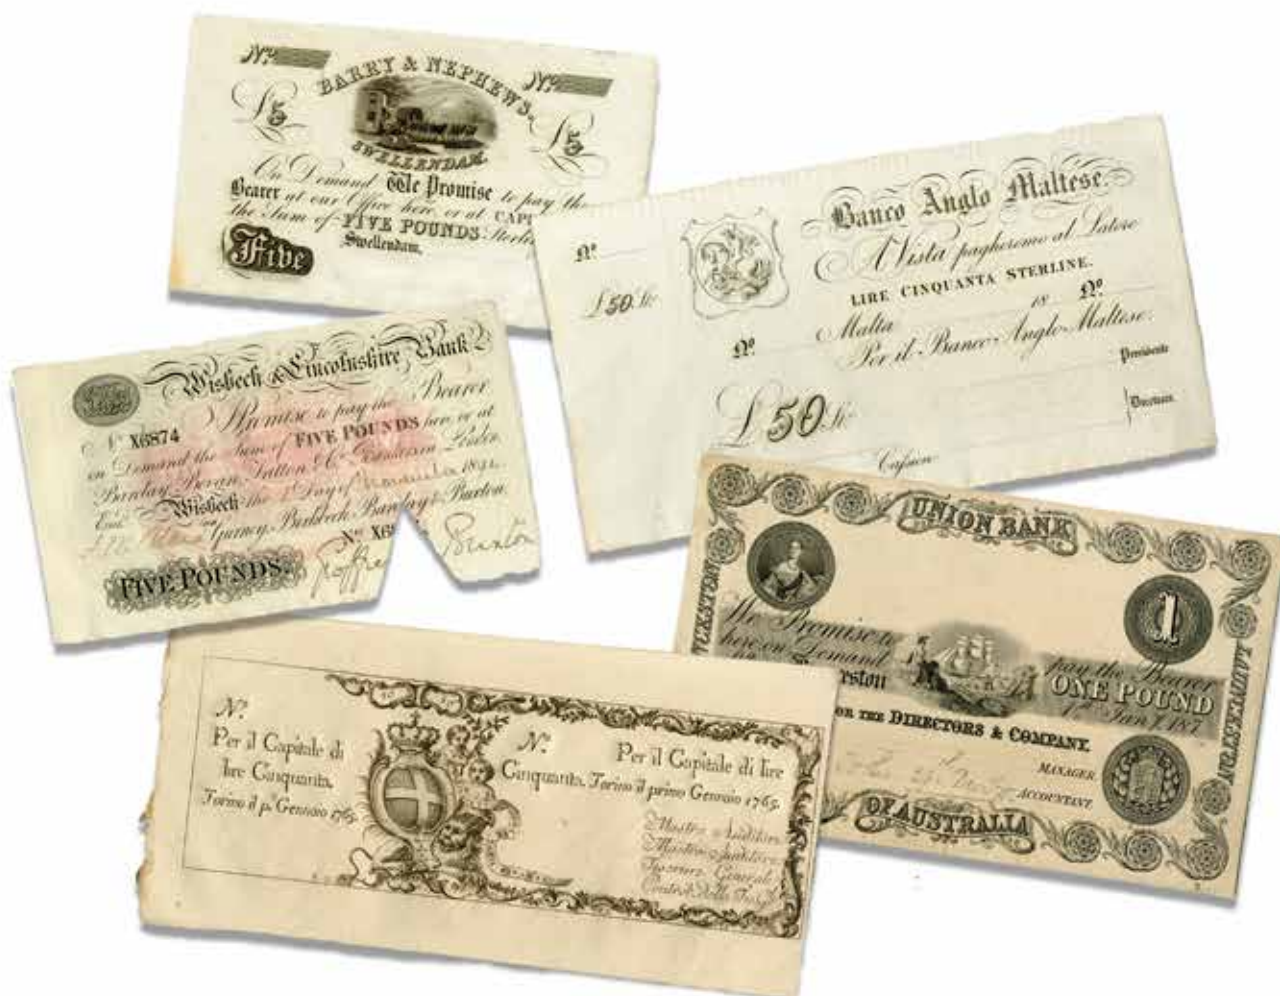 Nº Nº
BARRY & NEPHEWS,
£5 £5
SWELLENDAM.
On Demand We Promise to pay the
Bearer at our Office here or at CAP
the Sum of FIVE POUNDS Sterli
Swellendam,
Five
Banco Anglo Maltese.
Nº
A Vista pagheremo al Latore
£50 St.
LIRE CINQUANTA STERLINE.
18 Nº
Nº Malta
Per il Banco Anglo-Maltese.
Presidente
£50 St.
Direttore
Cassiere
Wisbech & Lincolnshire Bank
Nº X6874 I Promise to pay the Bearer
on Demand the Sum of FIVE POUNDS here or at
Barclay Bevan, Tritton & Co. Bankers London
Wisbech the Day of 189
Entd. Gurney, Birkbeck, Barclay & Buxton.
Nº X6
FIVE POUNDS. Buxton
UNION BANK
LAUNCESTON
1
We Promise to pay the Bearer
here on Demand ONE POUND
rston 1st Jany. 187
OR THE DIRECTORS & COMPANY.
MANAGER
ACCOUNTANT
OF AUSTRALIA
LAUNCESTON
Nº
Per il Capitale di
lire Cinquanta.
Torino il pº Gennaio 1765.
Nº Per il Capitale di lire
Cinquanta. Torino il primo Gennaio 1765.
Mastro Auditore
Mastro Auditore
Tesoriere Generale